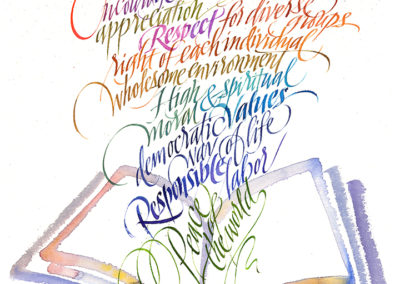 appreciation
Respect for diverse groups
right of each individual
Wholesome environment
High
moral & spiritual
values
democratic way of life
Responsible labor
Peace of the world